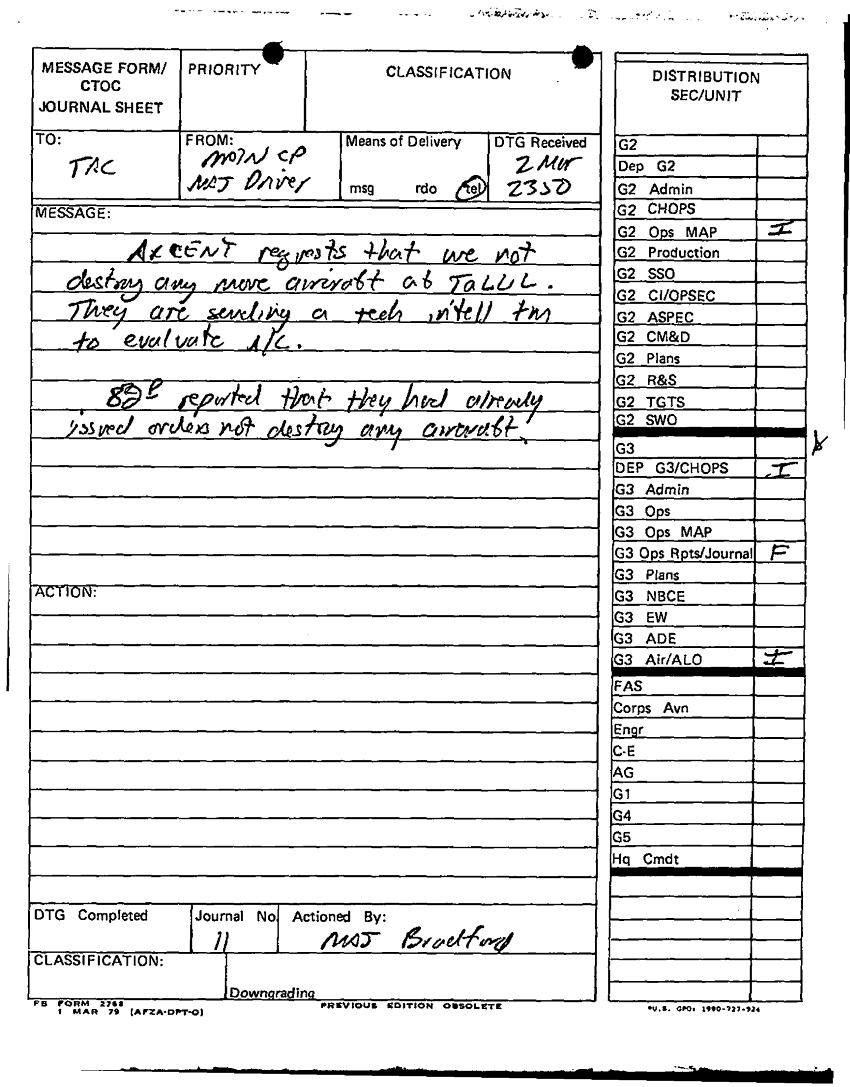 MESSAGE FORM/
CTOC
JOURNAL SHEET
PRIORITY
CLASSIFICATION
TO:
TAC
FROM:
MAIN CP
MAJ Driver
Means of Delivery
msg rdo tel
DTG Received
2 Mar
2350
MESSAGE:
ARCENT requests that we not
destroy any more aircraft at TALLIL.
They are sending a tech intell tm
to evaluate A/C.
82D reported that they had already
issued orders not destroy any aircraft.
ACTION:
DTG Completed
Journal No.
11
Actioned By:
MAJ Bradford
CLASSIFICATION:
Downgrading
FB FORM 2768
1 MAR 79 (AFZA-DPT-O)
PREVIOUS EDITION OBSOLETE
DISTRIBUTION
SEC/UNIT
G2
Dep G2
G2 Admin
G2 CHOPS
G2 Ops MAP I
G2 Production
G2 SSO
G2 CI/OPSEC
G2 ASPEC
G2 CM&D
G2 Plans
G2 R&S
G2 TGTS
G2 SWO
G3
DEP G3/CHOPS I
G3 Admin
G3 Ops
G3 Ops MAP
G3 Ops Rpts/Journal F
G3 Plans
G3 NBCE
G3 EW
G3 ADE
G3 Air/ALO I
FAS
Corps Avn
Engr
C-E
AG
G1
G4
G5
Hq Cmdt
*U.S. GPO: 1990-727-924